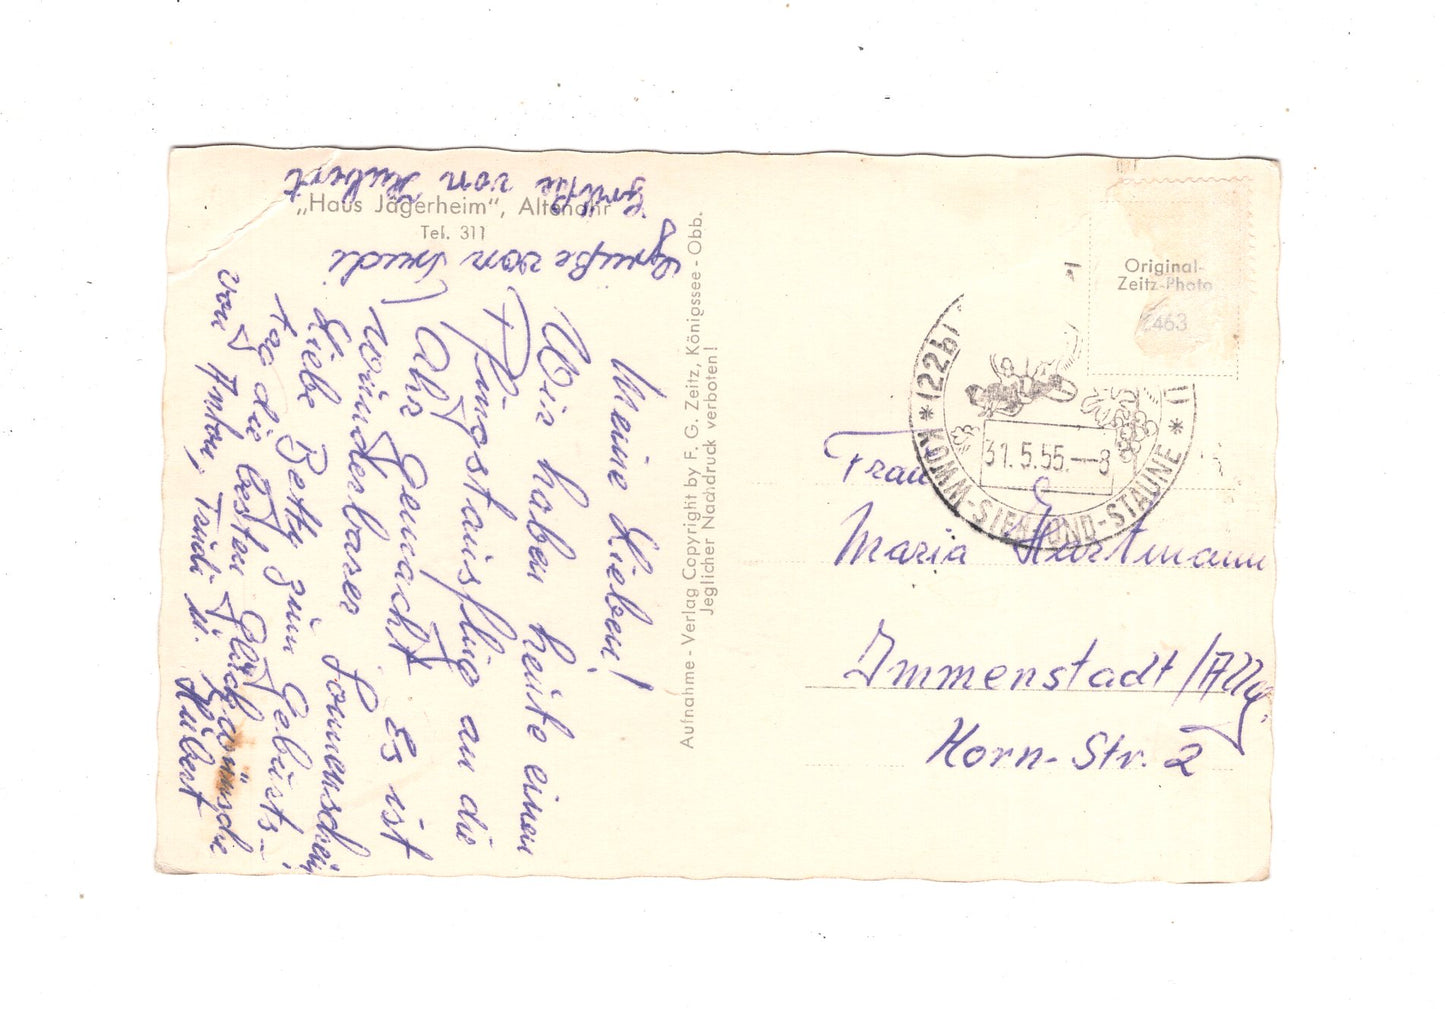 „Haus Jägerheim", Altenahr
Tel. 311
Meine Lieben!
Wir haben heute einen
Pfingstausflug an die
Ahr gemacht. Es ist
wunderbarer Sonnenschein.
Liebe Betty zum Geburts-
tag die besten Glückwünsche
von Anton, Trudi u. Hubert
Grüße von Trudi
Grüße von Hubert
Aufnahme - Verlag Copyright by F. G. Zeitz, Königssee - Obb.
Jeglicher Nachdruck verboten!
Original-
Zeitz-Photo
2463
(22b)
31.5.55.—8
* KOMM-SIEH-UND-STAUNE *
Frau
Maria Hartmann
Immenstadt/Allg.
Horn-Str. 2